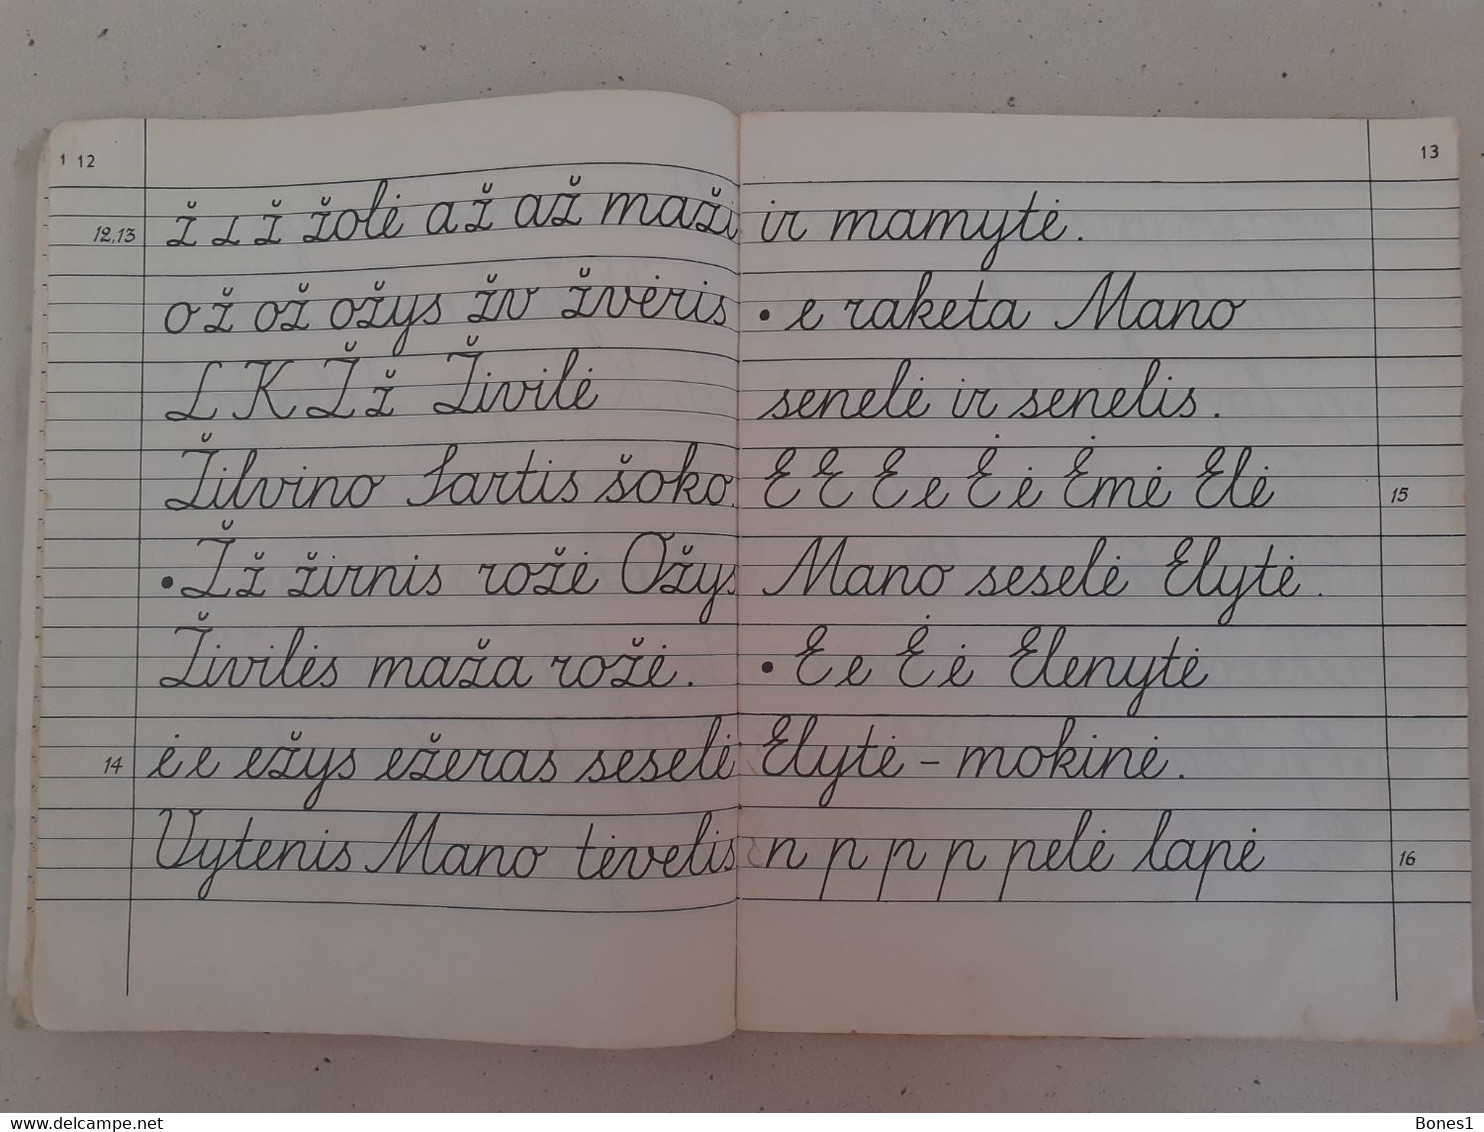 1 12
12,13 ž ı ž žolė a ž až maži
o ž ož ožys žv žvėris
L K Ž ž Živilė
Žilvino Sartis šoko.
• Ž ž žirnis rožė Ožys
Živilės maža rožė.
14 ė e ežys ežeras seselė
Vytenis Mano tėvelis
13
ir mamytė.
• e raketa Mano
senelė ir senelis.
E E E e Ė ė Ėmė Elė 15
Mano seselė Elytė.
• E e Ė ė Elenytė
Elytė - mokinė.
n p p p pelė lapė 16
www.delcampe.net
Bones1